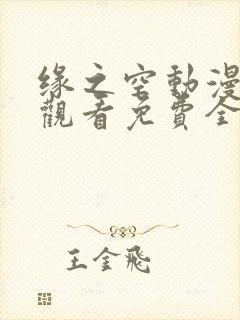 缘之空動漫
觀看免費全
王金飛